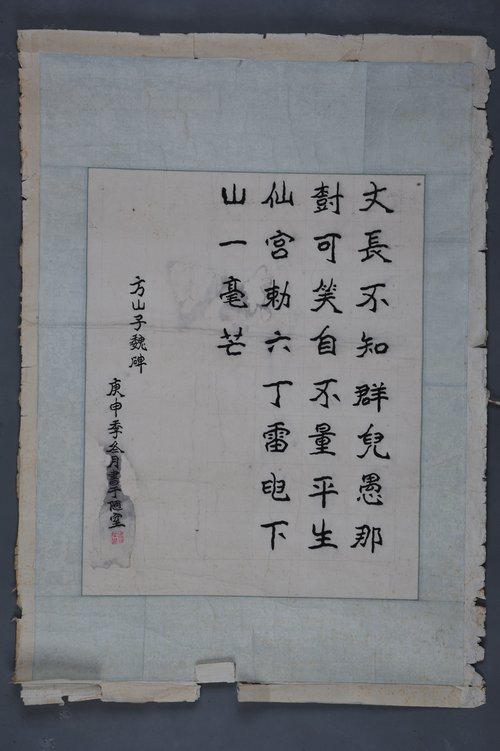 丈長不知群兒愚那
尌可笑自不量平生
仙宮勅六丁雷电下
山一毫芒
方山子魏碑
庚申季月書于陋室